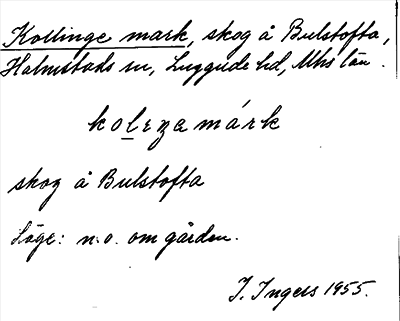 Kollinge mark, skog å Bulstofta,
Halmstads sn, Luggude hd, Mhs län.
kolеꞑamárk
skog å Bulstofta
Läge: n.o. om gården.
I. Ingers 1955.